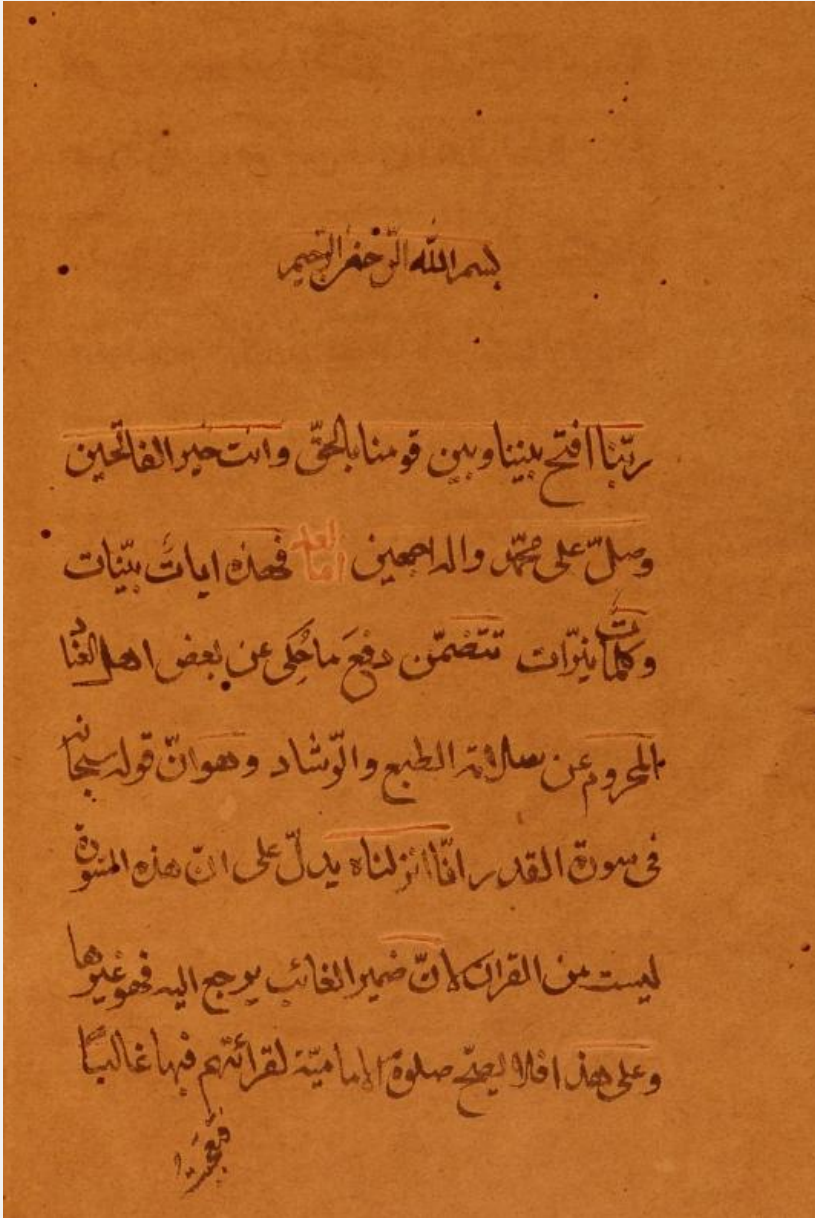 بسم الله الرّحمن الرّحيم
ربّنا افتح بيننا وبين قومنا بالحقّ وانت خير الفاتحين
وصلّ على محمّد واله اجمعين امّا بعد فهذه اياتٌ بيّنات
وكلماتٌ نيّرات تتضمّن دفعَ ما حُكى عن بعض اهل العناد
المحروم عن سلامة الطبع والرّشاد وهو انّ قوله سبحانه
فى سورة القدر انّا انزلناه يدلّ على انّ هذه السّورة
ليست من القران لانّ ضمير الغائب يرجع اليه فهو غيرها
وعلى هذا فلا يصحّ صلوة الاماميّة لقرائتهم فيها غالبًا
فتعجّبتُ